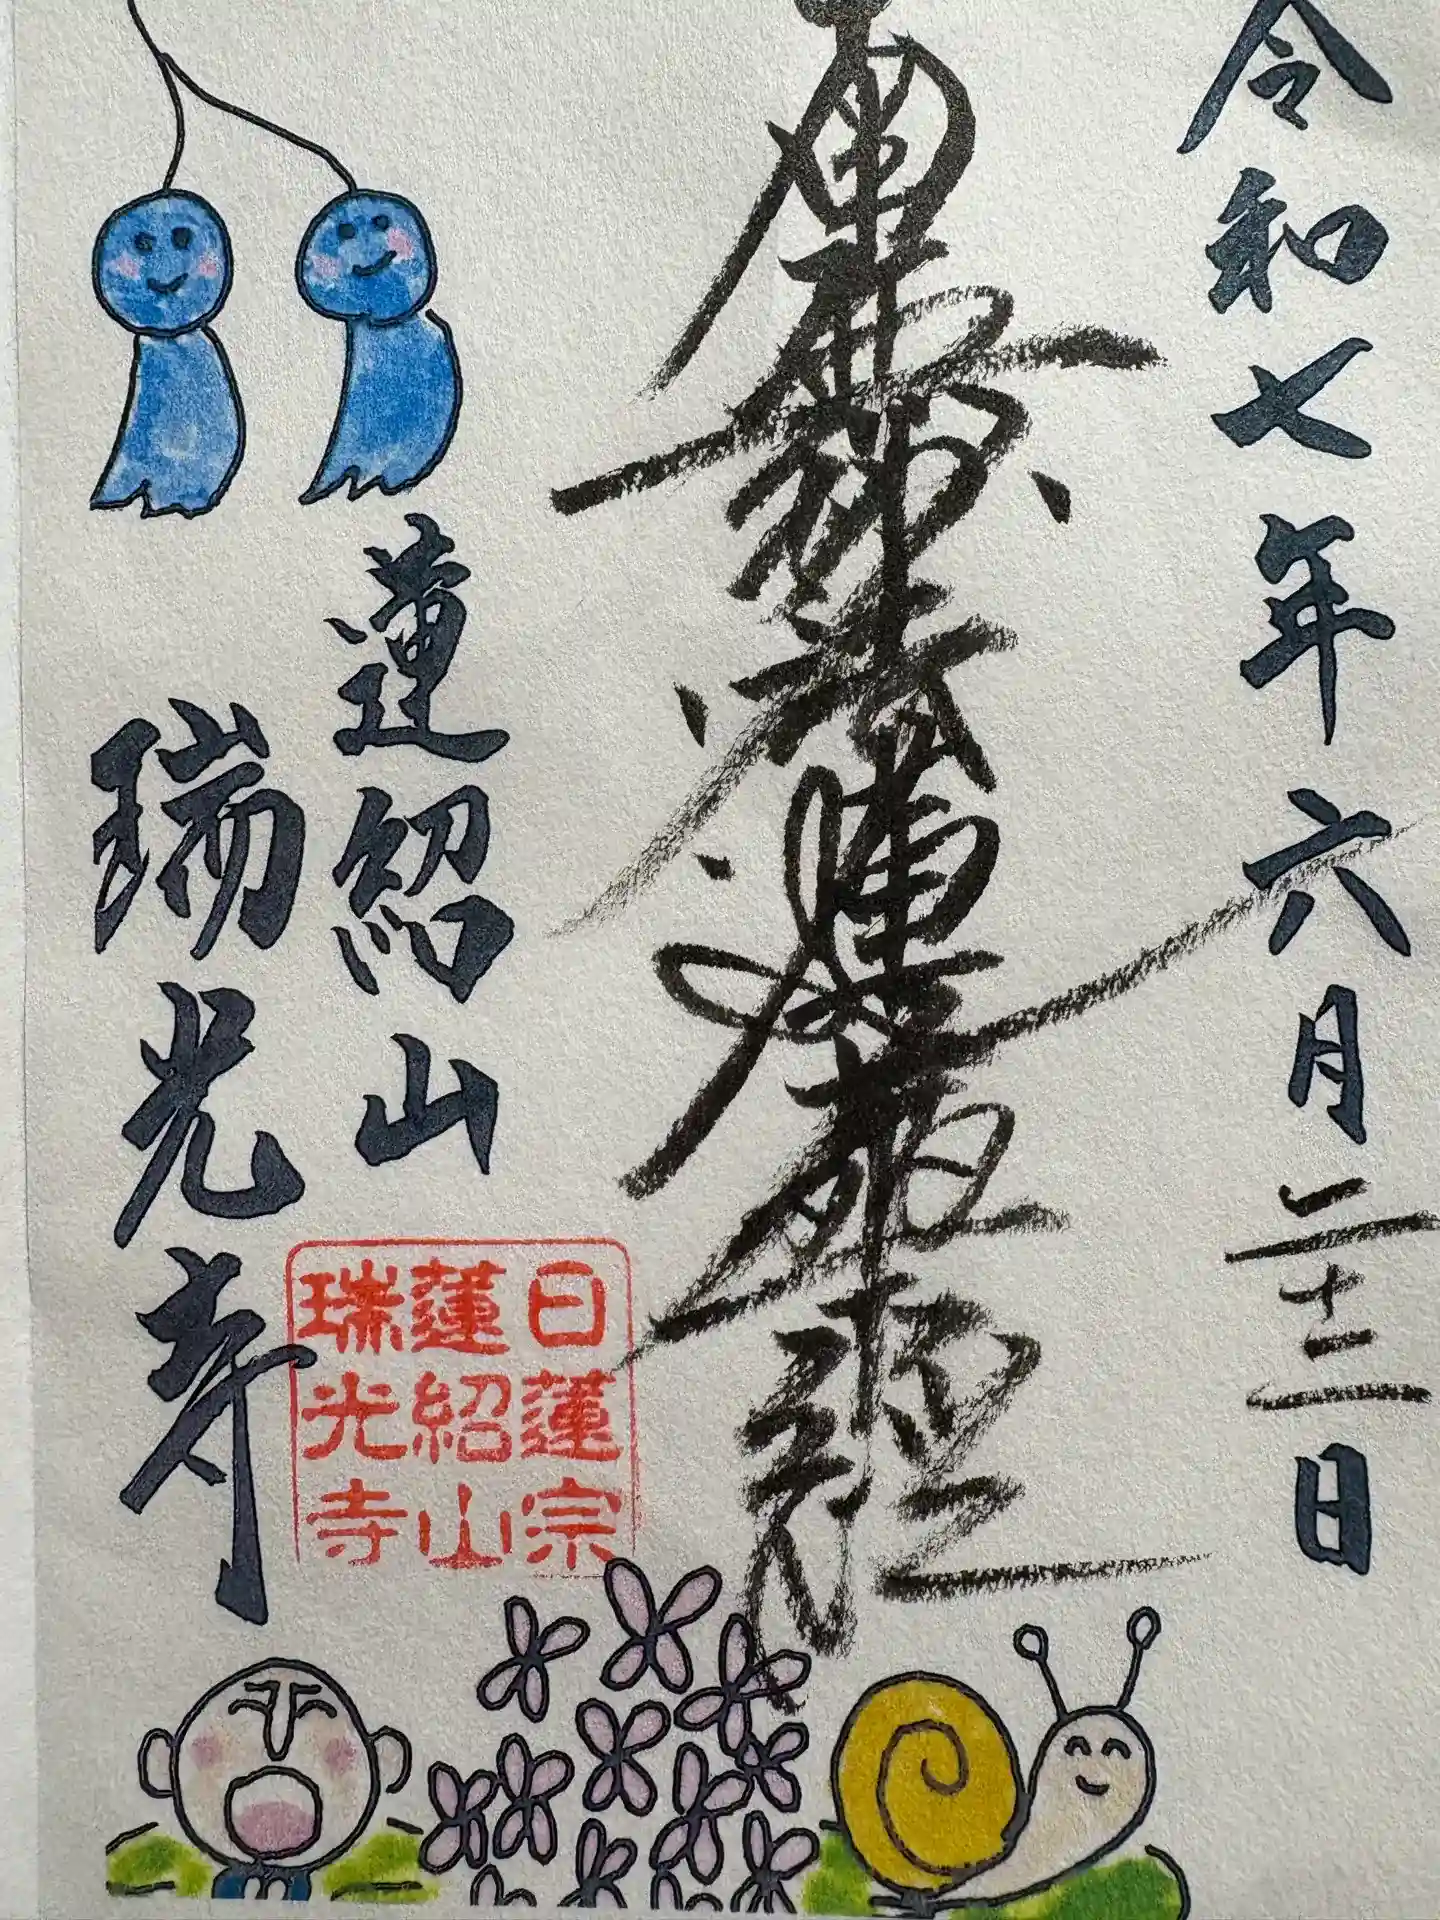 令和七年六月二十二日
南無妙法蓮華經
蓮紹山
瑞光寺
日蓮宗
蓮紹山
瑞光寺